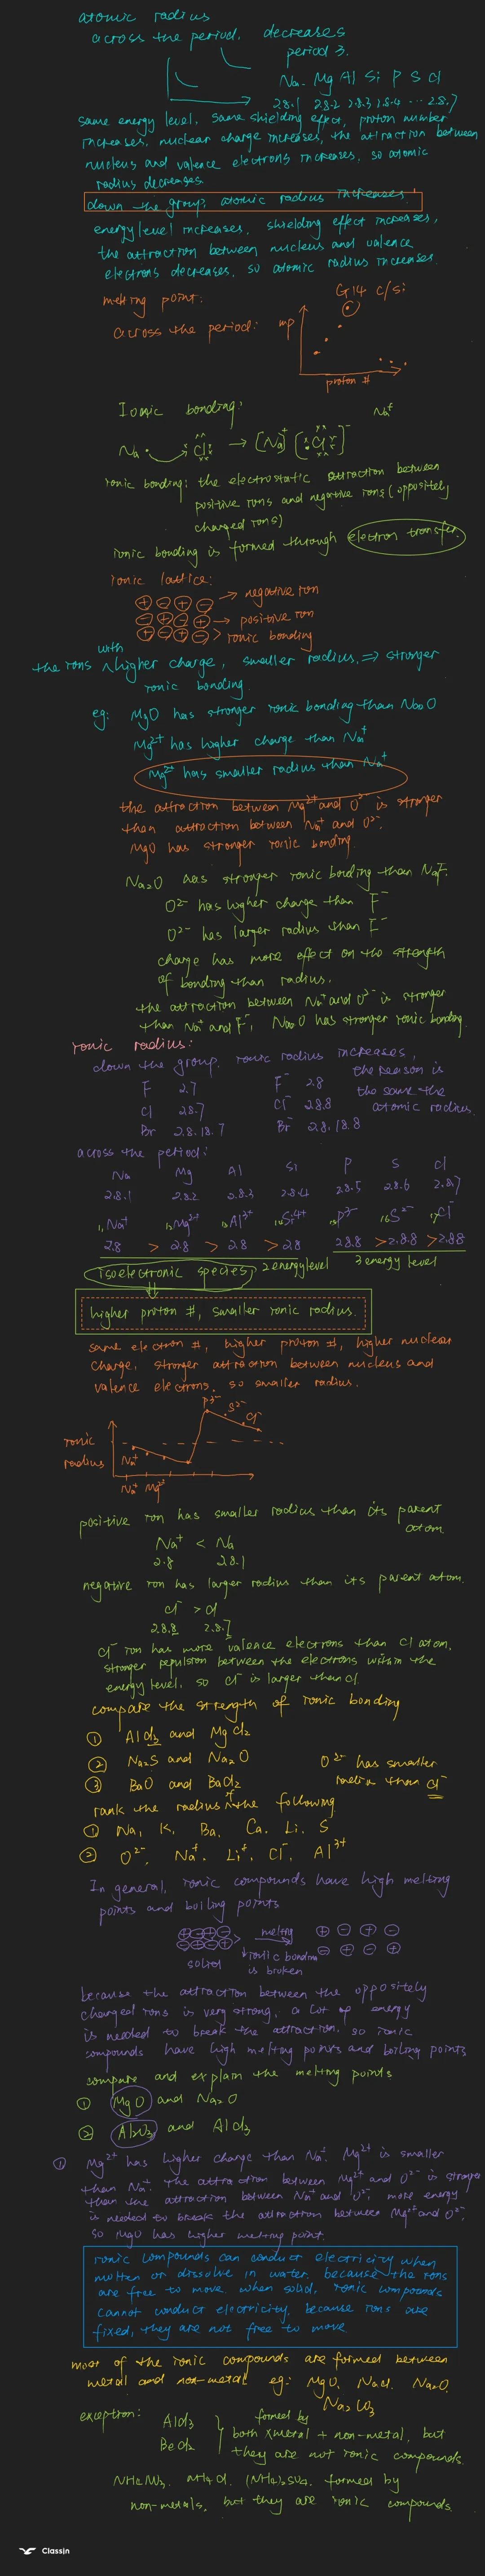 atomic radius
across the period, decreases
period 3.
Na. Mg Al Si P S Cl
2.8.1 2.8.2 2.8.3 2.8.4 ... 2.8.7
same energy level, same shielding effect, proton number
increases, nuclear charge increases, the attraction between
nucleus and valence electrons increases, so atomic
radius decreases.
down the group, atomic radius increases.
energy level increases, shielding effect increases,
the attraction between nucleus and valence
electrons decreases, so atomic radius increases.
melting point:
G14 C/Si
across the period:
mp
proton #
Ionic bonding:
Na⁺
Na Cl → [Na]⁺ [Cl]⁻
ionic bonding: the electrostatic attraction between
positive ions and negative ions (oppositely
charged ions)
ionic bonding is formed through electron transfer.
ionic lattice:
+ - + - → negative ion
- + - + → positive ion
+ - + - > ionic bonding
with
the ions ∧ higher charge, smaller radius. ⇒ stronger
ionic bonding.
eg: MgO has stronger ionic bonding than Na₂O
Mg²⁺ has higher charge than Na⁺
Mg²⁺ has smaller radius than Na⁺
the attraction between Mg²⁺ and O²⁻ is stronger
than attraction between Na⁺ and O²⁻.
MgO has stronger ionic bonding.
Na₂O has stronger ionic bonding than NaF.
O²⁻ has higher charge than F⁻
O²⁻ has larger radius than F⁻
charge has more effect on the strength
of bonding than radius.
the attraction between Na⁺ and O²⁻ is stronger
than Na⁺ and F⁻, Na₂O has stronger ionic bonding.
ionic radius:
down the group. ionic radius increases,
F 2.7 F⁻ 2.8 the reason is
Cl 2.8.7 Cl⁻ 2.8.8 the same the
Br 2.8.18.7 Br⁻ 2.8.18.8 atomic radius.
across the period:
Na Mg Al Si P S Cl
2.8.1 2.8.2 2.8.3 2.8.4 2.8.5 2.8.6 2.8.7
₁₁Na⁺ ₁₂Mg²⁺ ₁₃Al³⁺ ₁₄Si⁴⁺ ₁₅P³⁻ ₁₆S²⁻ ₁₇Cl⁻
2.8 > 2.8 > 2.8 > 2.8 2.8.8 > 2.8.8 > 2.8.8
isoelectronic species 2 energy level 3 energy level
higher proton #, smaller ionic radius.
same electron #, higher proton #, higher nuclear
charge, stronger attraction between nucleus and
valence electrons. so smaller radius.
P³⁻ S²⁻ Cl⁻
ionic
radius
Na⁺
Na⁺ Mg²⁺
positive ion has smaller radius than its parent
atom
Na⁺ < Na
2.8 2.8.1
negative ion has larger radius than its parent atom.
Cl⁻ > Cl
2.8.8 2.8.7
Cl⁻ ion has more valence electrons than Cl atom,
stronger repulsion between the electrons within the
energy level, so Cl⁻ is larger than Cl.
compare the strength of ionic bonding
① AlCl₃ and MgCl₂
② Na₂S and Na₂O
③ BaO and BaCl₂
O²⁻ has smaller
radius than Cl⁻
rank the radius of the following
① Na, K, Ba, Ca. Li. S
② O²⁻, Na⁺. Li⁺, Cl⁻, Al³⁺
In general, ionic compounds have high melting
points and boiling points
melting
solid
ionic bonding
is broken
because the attraction between the oppositely
charged ions is very strong, a lot of energy
is needed to break the attraction. so ionic
compounds have high melting points and boiling points
compare and explain the melting points
① MgO and Na₂O
② Al₂O₃ and AlCl₃
① Mg²⁺ has higher charge than Na⁺. Mg²⁺ is smaller
than Na⁺. the attraction between Mg²⁺ and O²⁻ is stronger
than the attraction between Na⁺ and O²⁻. more energy
is needed to break the attraction between Mg²⁺ and O²⁻.
so MgO has higher melting point.
ionic compounds can conduct electricity when
molten or dissolve in water. because the ions
are free to move. when solid, ionic compounds
cannot conduct electricity, because ions are
fixed, they are not free to move
most of the ionic compounds are formed between
metal and non-metal eg: MgO, NaCl. Na₂O.
Na₂CO₃
exception: AlCl₃ formed by
BeCl₂ both metal + non-metal, but
they are not ionic compounds.
NH₄NO₃. NH₄Cl. (NH₄)₂SO₄. formed by
non-metals, but they are ionic compounds.
ClassIn